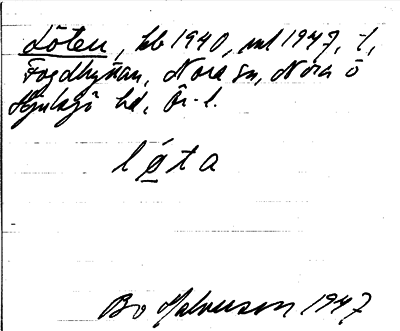 Löten, hb 1940, ml 1947, -l,
Fogdhyttan, Nora sn, Nora o
Hjulsjö hd, Ör. l.
lóta
Bo Halvarson 1947